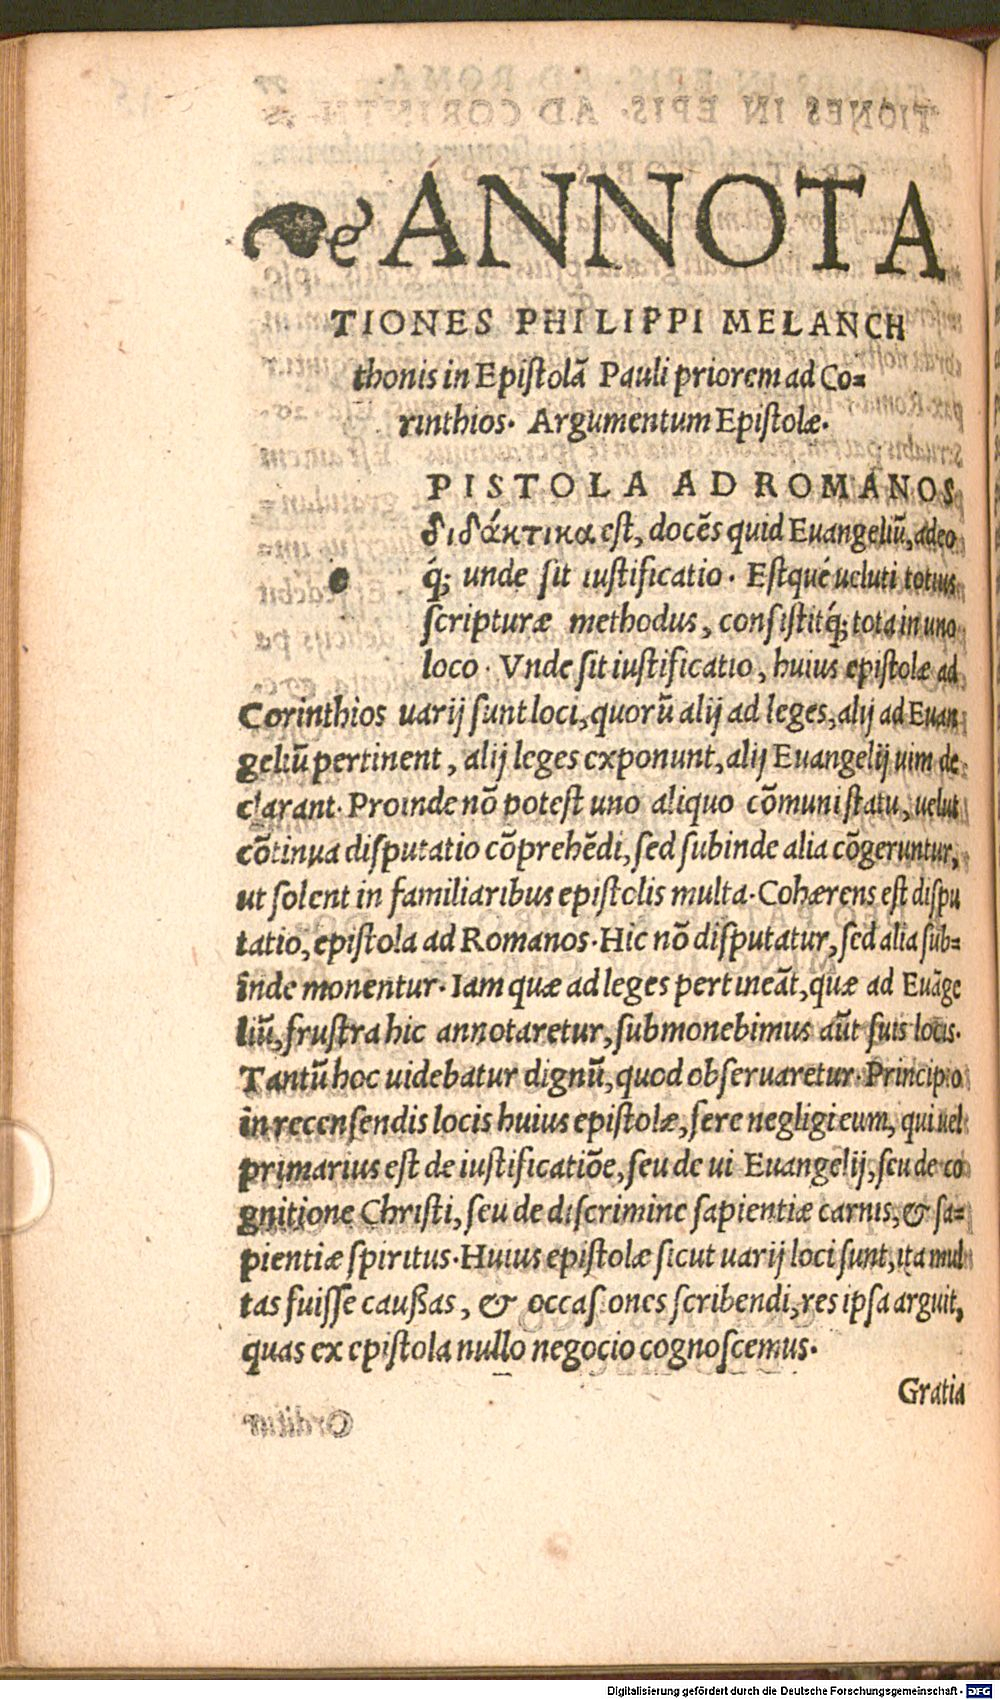 ANNOTA
TIONES PHILIPPI MELANCH
thonis in Epistolā Pauli priorem ad Co=
rinthios. Argumentum Epistolæ.
e PISTOLA AD ROMANOS
διδάκτικα est, docēs quid Euangeliū, adeo
q́; unde sit iustificatio. Estqué ueluti totius
scripturæ methodus, consistitq́; tota in uno
loco. Vnde sit iustificatio, huius epistolæ ad
Corinthios uarij sunt loci, quorū alij ad leges, alij ad Euan
geliū pertinent, alij leges exponunt, alij Euangelij uim de
clarant. Proinde nō potest uno aliquo cōmuni statu, uelut
cōtinua disputatio cōprehēdi, sed subinde alia cōgeruntur,
ut solent in familiaribus epistolis multa. Cohærens est dispu
tatio, epistola ad Romanos. Hic nō disputatur, sed alia sub=
inde monentur. Iam quæ ad leges pertineāt, quæ ad Euāge
liū, frustra hic annotaretur, submonebimus aūt suis locis.
Tantū hoc uidebatur dignū, quod obseruaretur. Principio
in recensendis locis huius epistolæ, fere negligi eum, qui uel
primarius est de iustificatiōe, seu de ui Euangelij, seu de co
gnitione Christi, seu de discrimine sapientiæ carnis, & sa=
pientiæ spiritus. Huius epistolæ sicut uarij loci sunt, ita mul
tas fuisse caußas, & occasiones scribendi, res ipsa arguit,
quas ex epistola nullo negocio cognoscemus.
Gratia
Digitalisierung gefördert durch die Deutsche Forschungsgemeinschaft - DFG